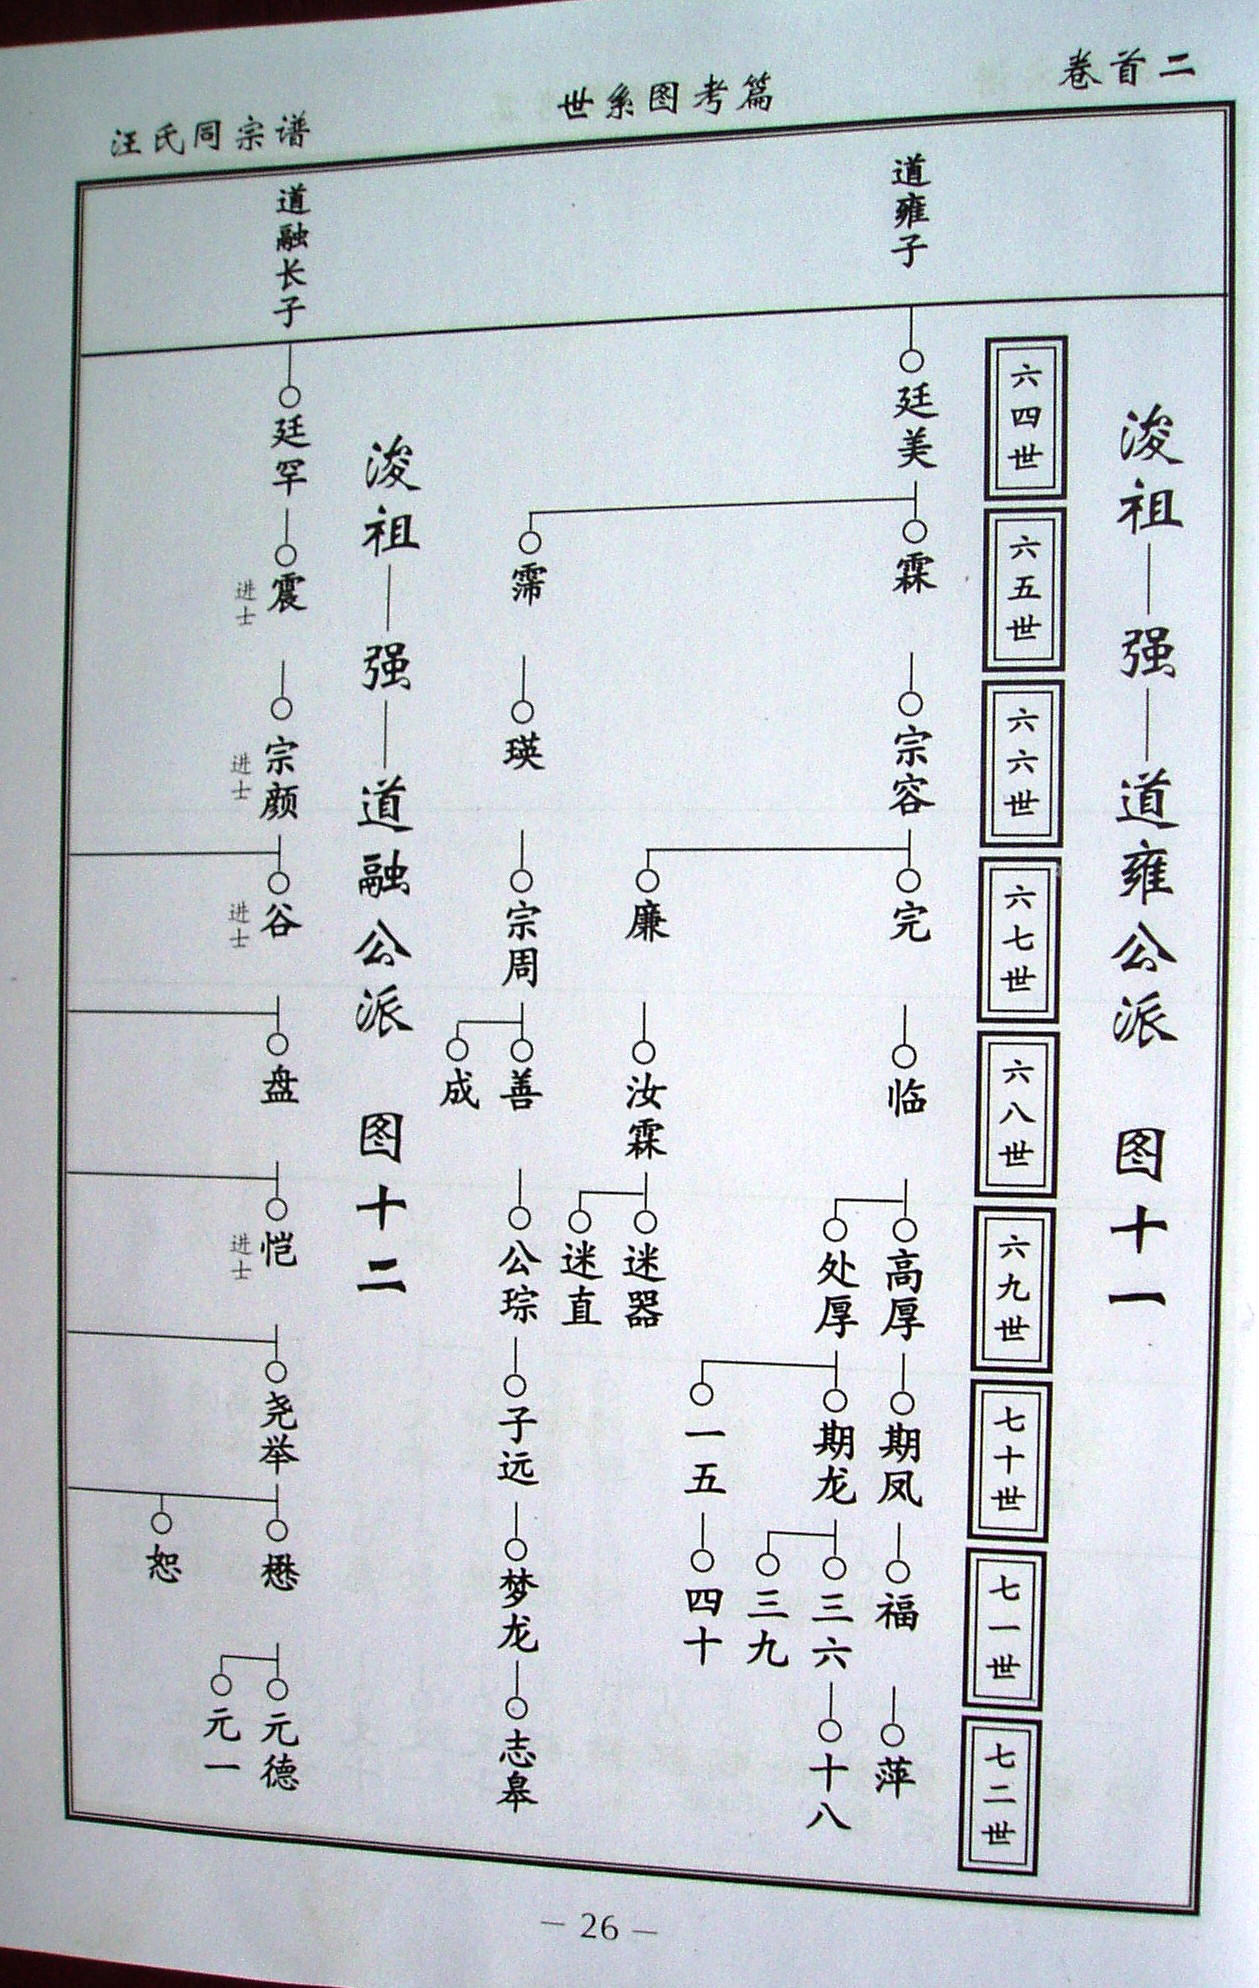 卷首二
世系图考篇
汪氏同宗谱
浚祖—强—道雍公派 图十一
六四世
六五世
六六世
六七世
六八世
六九世
七十世
七一世
七二世
道雍子
廷美
霖
宗容
完
临
高厚
期凤
福
萍
处厚
期龙
三六
十八
三九
一五
四十
廉
汝霖
迷器
迷直
霈
瑛
宗周
善
公琮
子远
梦龙
志皋
成
浚祖—强—道融公派 图十二
道融长子
廷罕
震
进士
宗颜
进士
谷
进士
盘
恺
进士
尧举
懋
元德
元一
恕
— 26 —